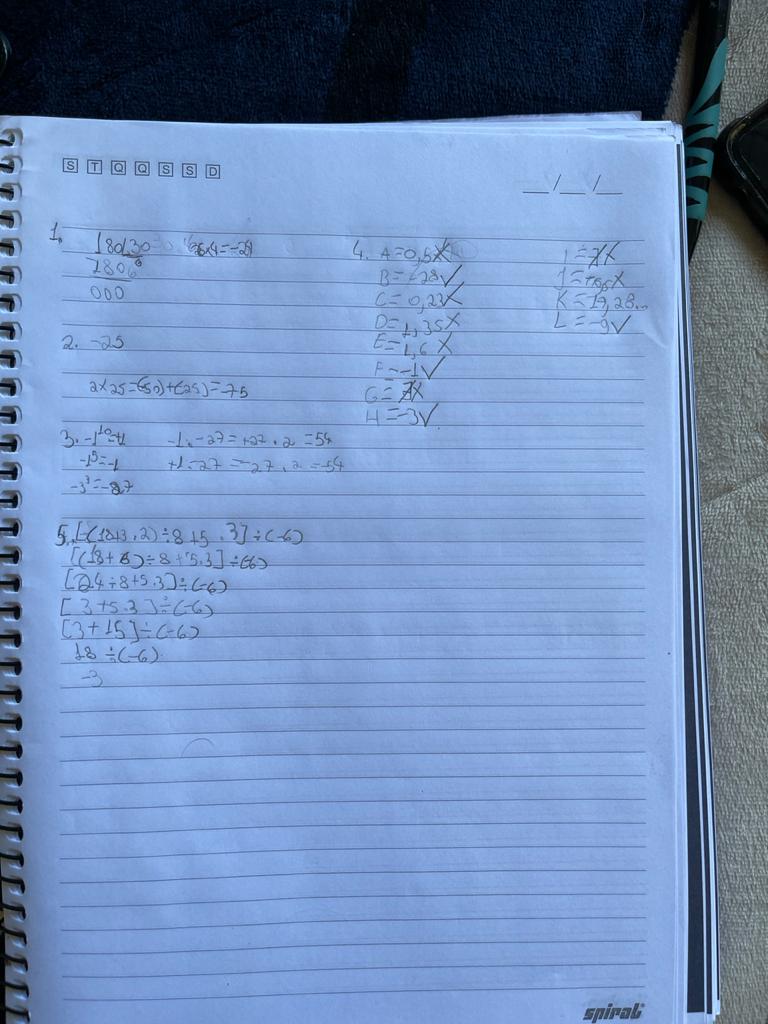 S T Q Q S S D
__/__/__
1. 180 30
180 6
000
2. -25
2x25=(-50)+(-25)=-75
3. -1¹⁰=+1 -1.-27=+27.2=54
-1⁵=-1 +1.-27=-27.2=-54
-3³=-27
4. A=0,5X
B=-28✓
C=0,23X
D=1,35X
E=1,6X
F=-1✓
G=
H=-3✓
K=19,28...
L=-9✓
5. [-(18+3.2)÷8+5.3]÷(-6)
[(18+6)÷8+5.3]÷(-6)
[24÷8+5.3]÷(-6)
[3+5.3]÷(-6)
[3+15]÷(-6)
18÷(-6)
-3
spiral